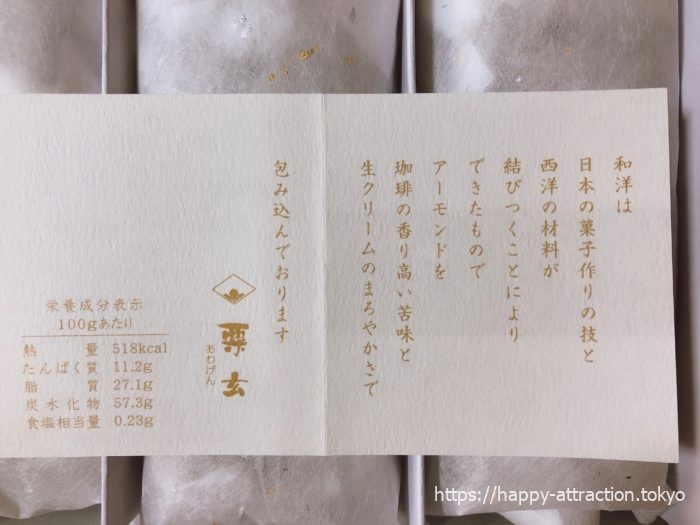 和洋は
日本の菓子作りの技と
西洋の材料が
結びつくことにより
できたもので
アーモンドを
珈琲の香り高い苦味と
生クリームのまろやかさで
包み込んでおります
粟玄
あわげん
栄養成分表示
100gあたり
熱量 518kcal
たんぱく質 11.2g
脂質 27.1g
炭水化物 57.3g
食塩相当量 0.23g
https://happy-attraction.tokyo